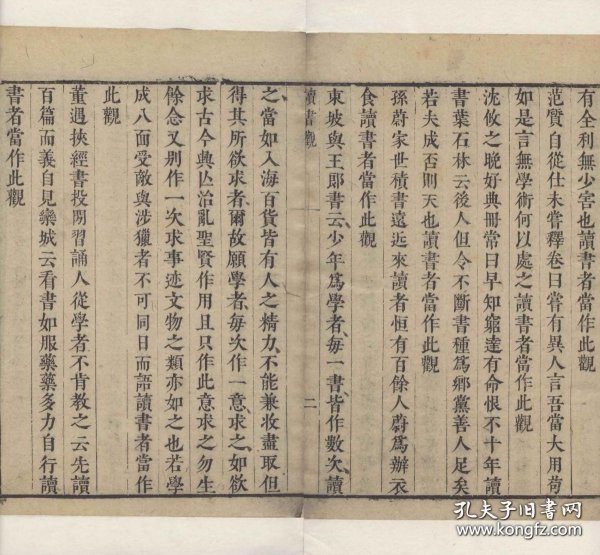 有全利無少害也讀書者當作此觀
范質自從仕未嘗釋卷曰嘗有異人言吾當大用苟
如是言無學術何以處之讀書者當作此觀
沈攸之晚好典冊常曰早知窮達有命恨不十年讀
書葉石林云後人但令不斷書種為鄉黨善人足矣
若夫成否則天也讀書者當作此觀
孫蔚家世積書遠近來讀者恒有百餘人蔚為辦衣
食讀書者當作此觀
東坡與王郎書云少年為學者每一書皆作數次讀
讀書觀
二
之當如入海百貨皆有人之精力不能兼收盡取但
得其所欲求者爾故願學者每次作一意求之如欲
求古今興亾治亂聖賢作用且只作此意求之勿生
餘念又別作一次求事迹文物之類亦如之也若學
成八面受敵與涉獵者不可同日而語讀書者當作
此觀
董遇挾經書投閒習誦人從學者不肯教之云先讀
百篇而義自見欒城云看書如服藥藥多力自行讀
書者當作此觀
孔夫子旧书网
www.kongfz.com